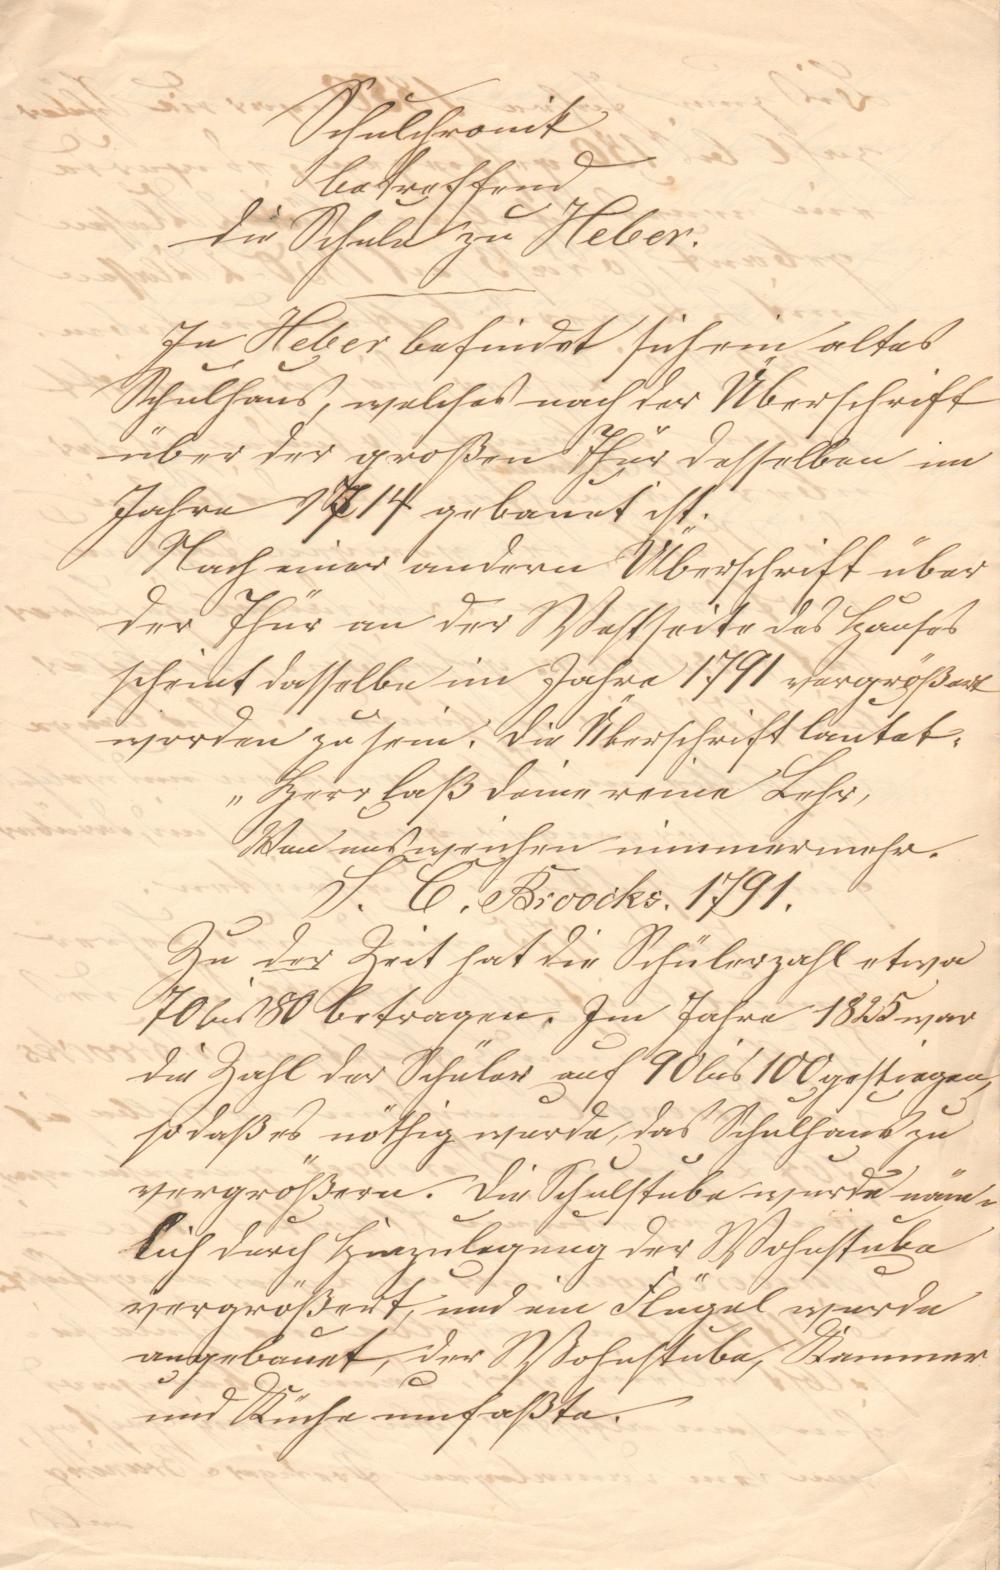 Schulchronik
betreffend
die Schule zu Heber.
In Heber befindet sich ein altes
Schulhaus, welches nach der Überschrift
über der großen Thür desselben im
Jahre 1714 gebauet ist.
Nach einer andern Überschrift über
der Thür an der Westseite des Hauses
scheint dasselbe im Jahre 1791 vergrößert
worden zu sein. Die Überschrift lautet:
„Herr laß deine reine Lehr,
Von uns weichen nimmermehr.
J. C. Broocks. 1791.
Zu der Zeit hat die Schülerzahl etwa
70 bis 80 betragen. Im Jahre 1825 war
die Zahl der Schüler auf 90 bis 100 gestiegen,
so daß es nöthig wurde, das Schulhaus zu
vergrößern. Die Schulstube wurde näm-
lich durch Hinzulegung der Wohnstube
vergrößert, und ein Flügel wurde
angebauet, der Wohnstube, Kammer
und Küche umfaßte.